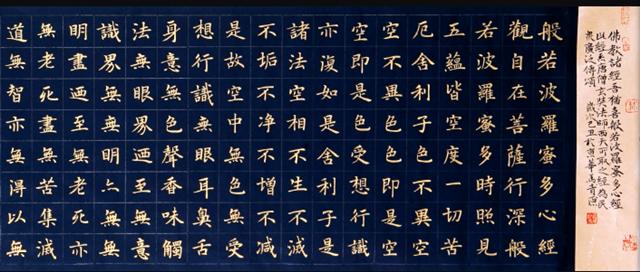 般若波羅蜜多心經
觀自在菩薩行深般
若波羅蜜多時照見
五蘊皆空度一切苦
厄舍利子色不異空
空不異色色即是空
空即是色受想行識
亦復如是舍利子是
諸法空相不生不滅
不垢不淨不增不減
是故空中無色無受
想行識無眼耳鼻舌
身意無色聲香味觸
法無眼界無迺至無意
識界無無明亦無無
明盡迺至無老死亦
無老死盡無苦集滅
道無智亦無得以無
佛教諸經吾猶喜般若波羅蜜多心經
此經為唐僧玄奘法師西天所取之經為民
衆廣泛傳頌 歲次己丑於京華